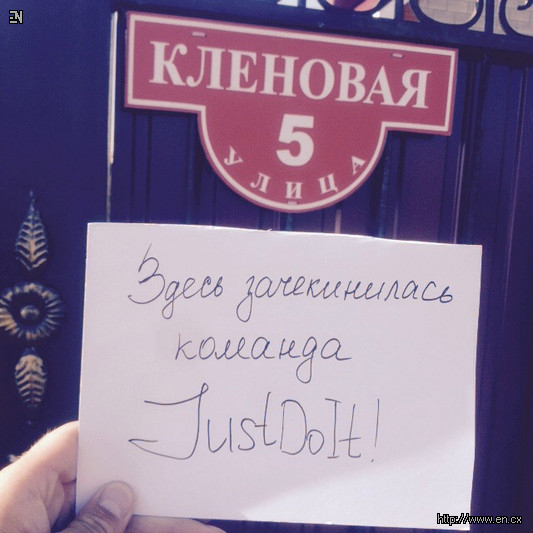 EN
КЛЕНОВАЯ
5
УЛИЦА
Здесь зачекинилась
команда
JustDoIt!
http://www.en.cx